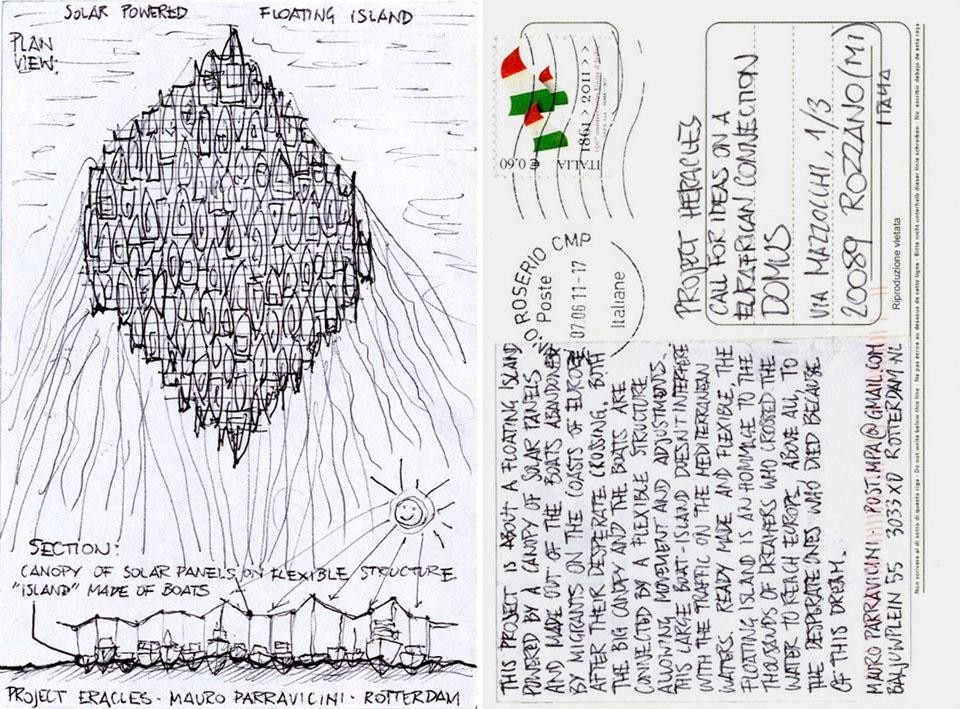 SOLAR POWERED FLOATING ISLAND
PLAN
VIEW:
SECTION:
CANOPY OF SOLAR PANELS ON FLEXIBLE STRUCTURE
"ISLAND" MADE OF BOATS
PROJECT ERACLES · MAURO PARRAVICINI · ROTTERDAM
THIS PROJECT IS ABOUT A FLOATING ISLAND
POWERED BY A CANOPY OF SOLAR PANELS
AND MADE OUT OF THE BOATS ABANDONED
BY MIGRANTS ON THE COASTS OF EUROPE
AFTER THEIR DESPERATE CROSSING. BOTH
THE BIG CANOPY AND THE BOATS ARE
CONNECTED BY A FLEXIBLE STRUCTURE
ALLOWING MOVEMENT AND ADJUSTMENTS.
THIS LARGE BOAT-ISLAND DOESN'T INTERFERE
WITH THE TRAFFIC ON THE MEDITERRANEAN
WATERS. READY MADE AND FLEXIBLE THE
FLOATING ISLAND IS AN HOMMAGE TO THE
THOUSANDS OF DREAMERS WHO CROSSED THE
WATER TO REACH EUROPE. ABOVE ALL, TO
THE DESPERATE ONES WHO DIED BECAUSE
OF THIS DREAM.
MAURO PARRAVICINI POST.MPA@GMAIL.COM
BAJUWPLEIN 55 3033XD ROTTERDAM NL
ROSERIO CMP
Poste
07.06 11-17
Italiane
€ 0,60
ITALIA
1861 > 2011 > >
PROJECT HERACLES
CALL FOR IDEAS ON A
EURAFRICAN CONNECTION
DOMUS
VIA MAZZOCCHI, 1/3
20089 ROZZANO (MI)
ITALIA
Riproduzione vietata
Non scrivere al di sotto di questa riga - Do not write below this line - Ne pas écrire au dessous de cette ligne - Bitte nicht unterhalb dieser linie schreiben - No escribir debajo de esta raya